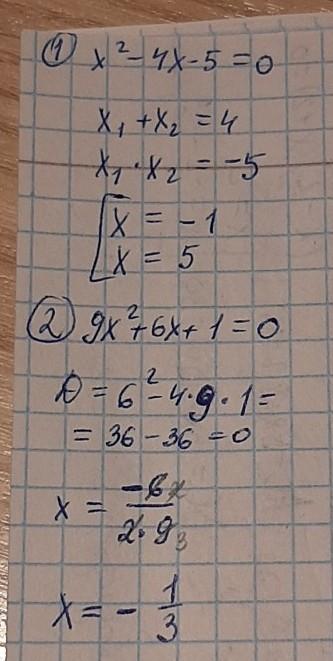 ① x² - 4x - 5 = 0
x₁ + x₂ = 4
x₁ · x₂ = -5
[ x = -1
x = 5
② 9x² + 6x + 1 = 0
D = 6² - 4 · 9 · 1 =
= 36 - 36 = 0
x = -6 2 / 2 · 9 3
x = - 1/3